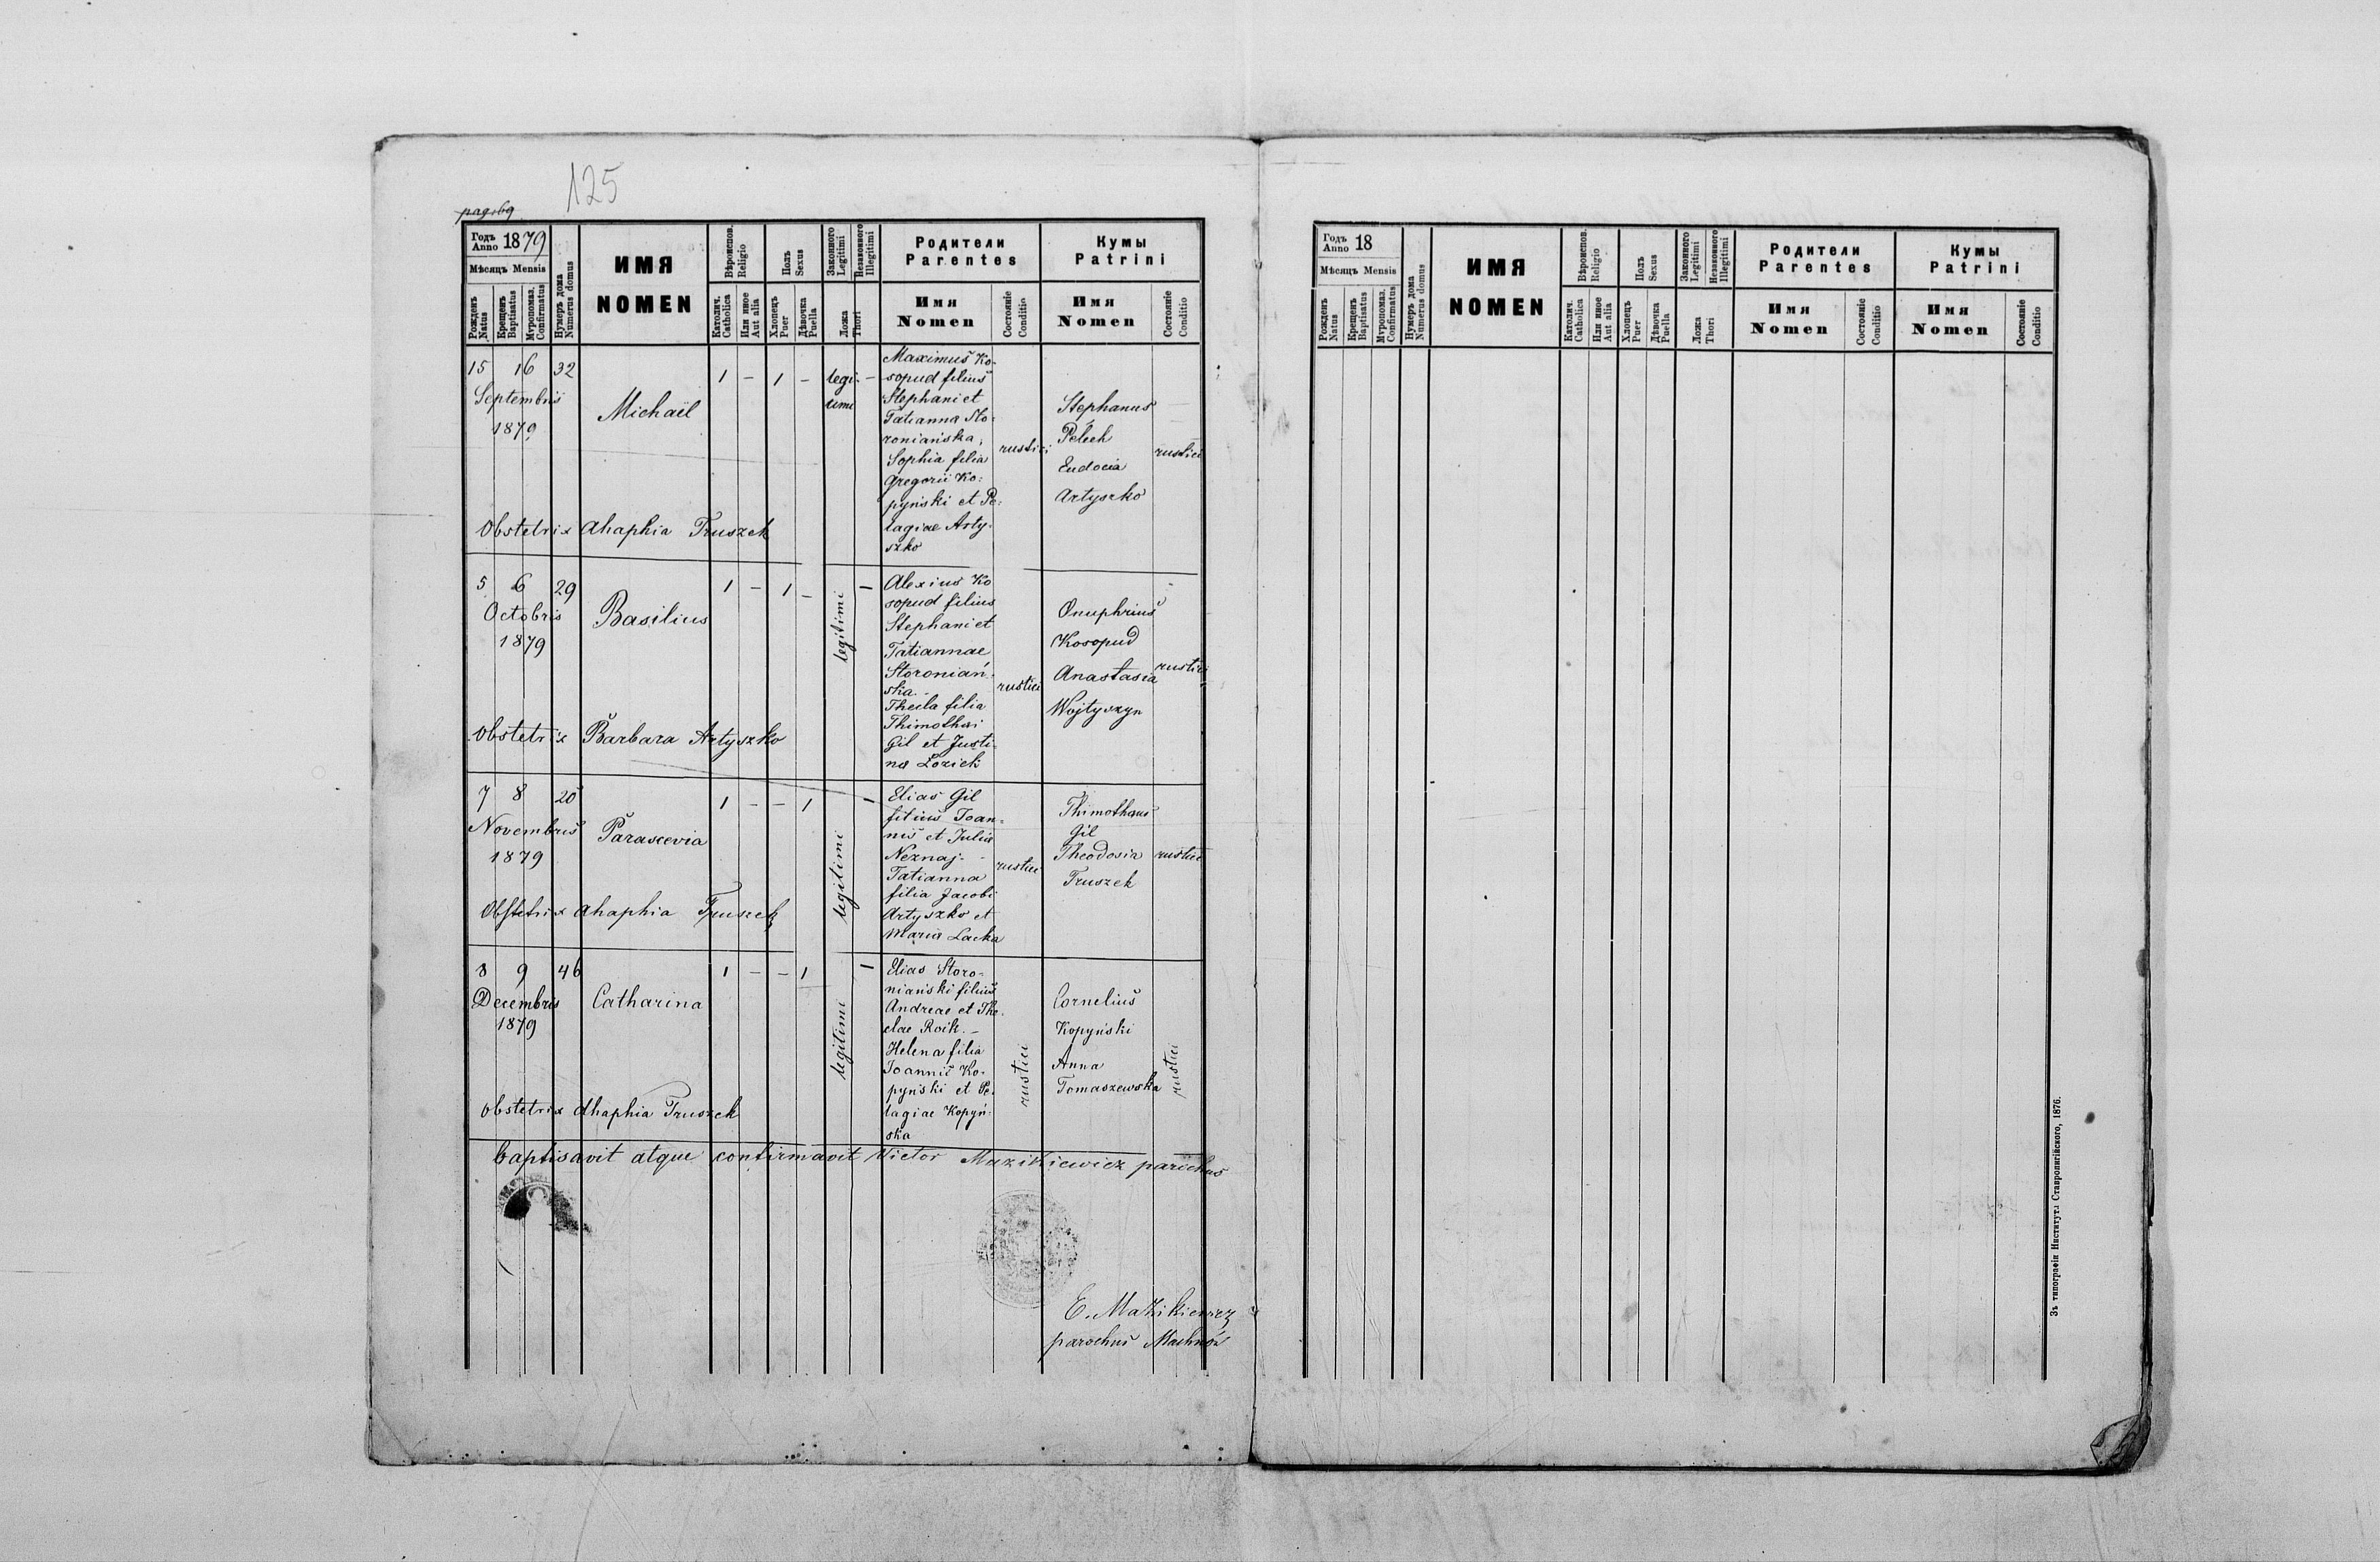 125
pag. 69
Годъ Anno 1879
Мѣсяцъ Mensis
Рожденъ Natus
Крещенъ Baptisatus
Мѵропомаз. Confirmatus
Нумеръ дома Numerus domus
ИМЯ
NOMEN
Вѣроиспов. Religio
Католич. Catholica
Или иное Aut alia
Полъ Sexus
Хлопецъ Puer
Дѣвочка Puella
Законного Legitimi
Незаконного Illegitimi
Ложа Thori
Родители
Parentes
Имя
Nomen
Состояніе Conditio
Кумы
Patrini
Имя
Nomen
Состояніе Conditio
15 16 32
Septembris
1879
Michaël
1 – 1 –
legi-
timi
–
Maximus Ko-
sopud filius
Stephani et
Tatianna Sto-
roniańska,
Sophia filia
Gregorii Ko-
pyński et Pe-
lagiae Arty-
szko
rustici
Stephanus
Pelech
Eudocia
Artyszko
rustici
Obstetrix Ahaphia Truszek
5 6 29
Octobris
1879
Basilius
1 – 1 –
legitimi
–
Alexius Ko
sopud filius
Stephani et
Tatiannae
Storoniań-
ska.-
Thecla filia
Thimothei
Gil et Justi-
na Lozick
rustici
Onuphrius
Kosopud
Anastasia
Wojtyszyn
rustici
Obstetrix Barbara Artyszko
7 8 20
Novembris
1879
Parascevia
1 – – 1
legitimi
–
Elias Gil
filius Ioan-
nis et Julia
Neznaj.-
Tatianna
filia Jacobi
Artyszko et
Maria Lacka
rustici
Thimothaus
Gil
Theodosia
Truszek
rustici
Obstetrix Ahaphia Truszek
8 9 46
Decembris
1879
Catharina
1 – – 1
legitimi
–
Elias Storo-
niański filius
Andreae et The-
clae Roik.-
Helena filia
Ioannis Ko-
pyński et Pe-
lagiae Kopyń-
ska
rustici
Cornelius
Kopyński
Anna
Tomaszewska
rustici
Obstetrix Ahaphia Truszek
baptisavit atque confirmavit Victor Mazikiewicz parochus
E. Mazikiewicz
parochus Machnów
Годъ Anno 18
Мѣсяцъ Mensis
Рожденъ Natus
Крещенъ Baptisatus
Мѵропомаз. Confirmatus
Нумеръ дома Numerus domus
ИМЯ
NOMEN
Вѣроиспов. Religio
Католич. Catholica
Или иное Aut alia
Полъ Sexus
Хлопецъ Puer
Дѣвочка Puella
Законного Legitimi
Незаконного Illegitimi
Ложа Thori
Родители
Parentes
Имя
Nomen
Состояніе Conditio
Кумы
Patrini
Имя
Nomen
Состояніе Conditio
Зъ типографіи Института Ставропигійского, 1876.